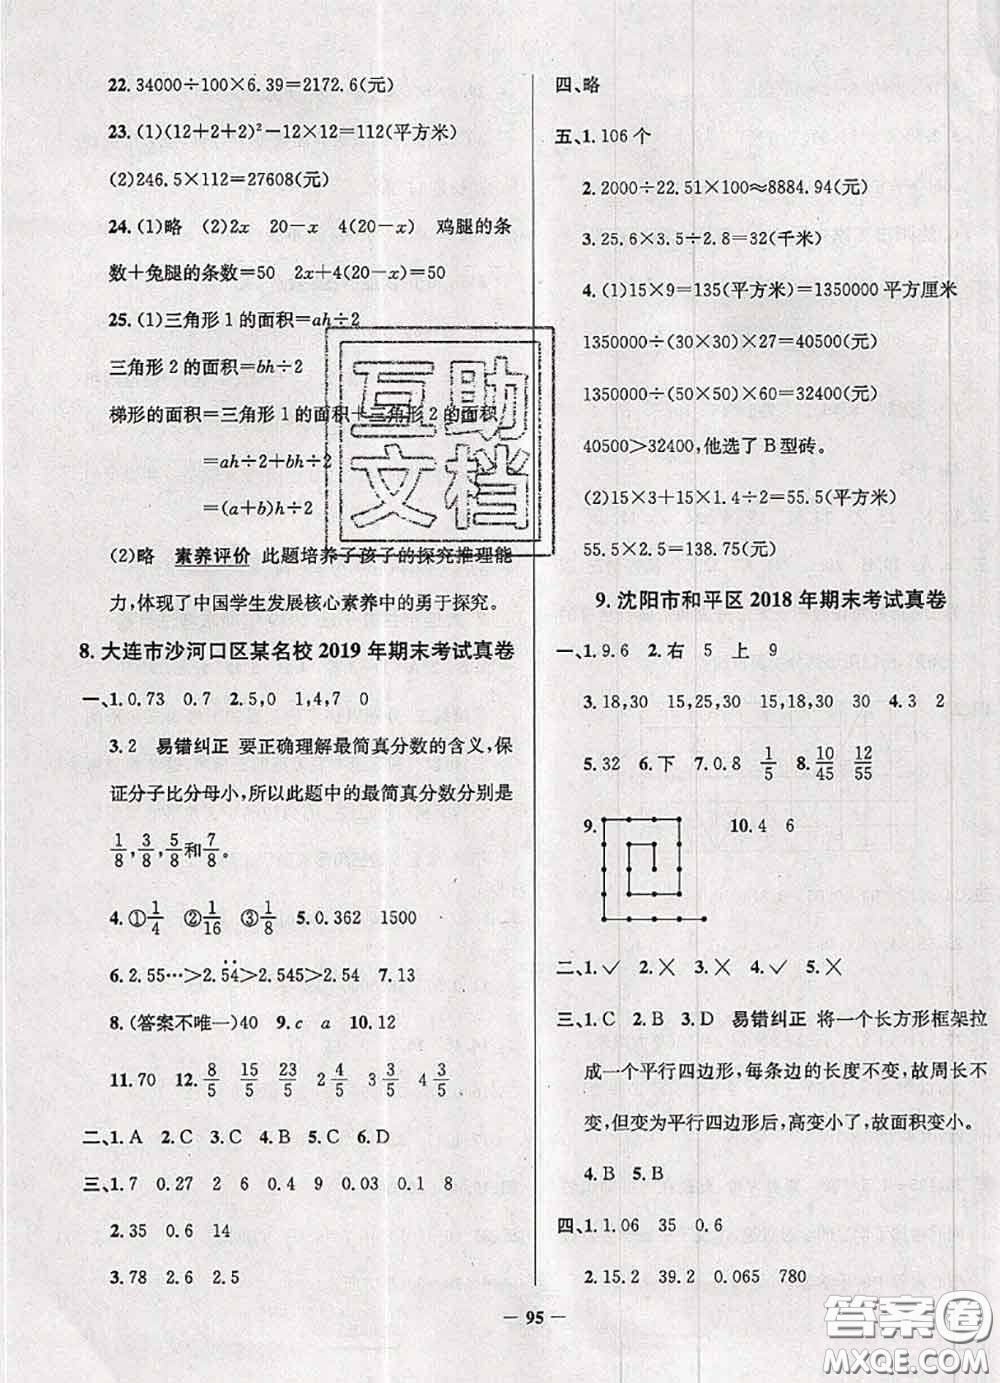 22. 34000÷100×6.39=2172.6(元)
23. (1)(12+2+2)²-12×12=112(平方米)
(2)246.5×112=27608(元)
24. (1)略 (2)2x 20-x 4(20-x) 鸡腿的条
数+兔腿的条数=50 2x+4(20-x)=50
25. (1)三角形1的面积=ah÷2
三角形2的面积=bh÷2
梯形的面积=三角形1的面积+三角形2的面积
=ah÷2+bh÷2
=(a+b)h÷2
(2)略 素养评价 此题培养子孩子的探究推理能
力,体现了中国学生发展核心素养中的勇于探究。
8. 大连市沙河口区某名校 2019 年期末考试真卷
一、1. 0.73 0.7 2. 5,0 1,4,7 0
3. 2 易错纠正 要正确理解最简真分数的含义,保
证分子比分母小,所以此题中的最简真分数分别是
1/8, 3/8, 5/8和7/8。
4. ①1/4 ②1/16 ③1/8 5. 0.362 1500
6. 2.55…>2.5̇4̇>2.545>2.54 7. 13
8. (答案不唯一)40 9. c a 10. 12
11. 70 12. 8/5 15/5 23/5 2 4/5 3 4/5 4 3/5
二、1. A 2. C 3. C 4. B 5. C 6. D
三、1. 7 0.27 2 6 0.4 9 0.03 0.1 8
2. 35 0.6 14
3. 78 2.6 2.5
四、略
五、1. 106 个
2. 2000÷22.51×100≈8884.94(元)
3. 25.6×3.5÷2.8=32(千米)
4. (1)15×9=135(平方米)=1350000 平方厘米
1350000÷(30×30)×27=40500(元)
1350000÷(50×50)×60=32400(元)
40500>32400,他选了B型砖。
(2)15×3+15×1.4÷2=55.5(平方米)
55.5×2.5=138.75(元)
9. 沈阳市和平区 2018 年期末考试真卷
一、1. 9.6 2. 右 5 上 9
3. 18,30 15,25,30 15,18,30 30 4. 3 2
5. 32 6. 下 7. 0.8 1/5 8. 10/45 12/55
9. 10. 4 6
二、1. ✓ 2. × 3. × 4. ✓ 5. ×
三、1. C 2. B 3. D 易错纠正 将一个长方形框架拉
成一个平行四边形,每条边的长度不变,故周长不
变,但变为平行四边形后,高变小了,故面积变小。
4. B 5. B
四、1. 1.06 35 0.6
2. 15.2 39.2 0.065 780
— 95 —
互助
文档
答案圈
MXQE.COM